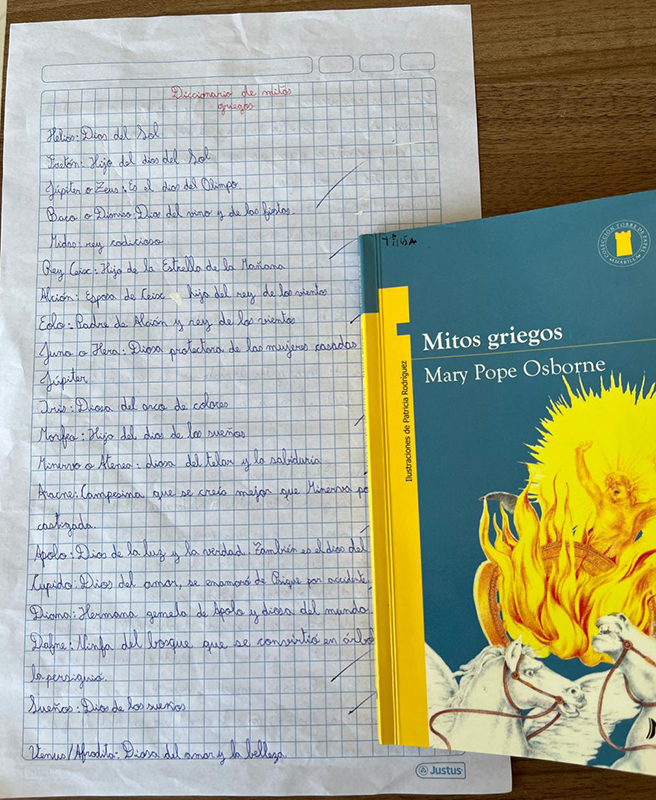 Diccionario de mitos
griegos
Helios: Dios del Sol
Faetón: Hijo del dios del Sol
Júpiter o Zeus: Es el dios del Olimpo.
Baco o Dioniso: Dios del vino y de las fiestas.
Midas: rey codicioso
Rey Ceix: Hijo de la Estrella de la Mañana
Alción: Esposa de Ceix hija del rey de los vientos
Eolo: Padre de Alción y rey de los vientos
Juno o Hera: Diosa protectora de las mujeres casadas
Júpiter
Iris: Diosa del arco de colores
Morfeo: Hijo del dios de los sueños
Minerva o Atenea: diosa del telar y la sabiduría
Aracne: Campesina que se creía mejor que Minerva
castigada.
Apolo: Dios de la luz y la verdad. También es el dios del
Cupido: Dios del amor, se enamoró de Psique por accidente
Diana: Hermana gemela de Apolo y diosa del mundo
Dafne: Ninfa del bosque que se convirtió en
la persiguió.
Sueños: Dios de los sueños
Venus/Afrodita: Diosa del amor y la belleza
Justus
COLECCIÓN TORRE DE PAPEL
AMARILLA
Mitos griegos
Mary Pope Osborne
Ilustraciones de Patricia Rodríguez